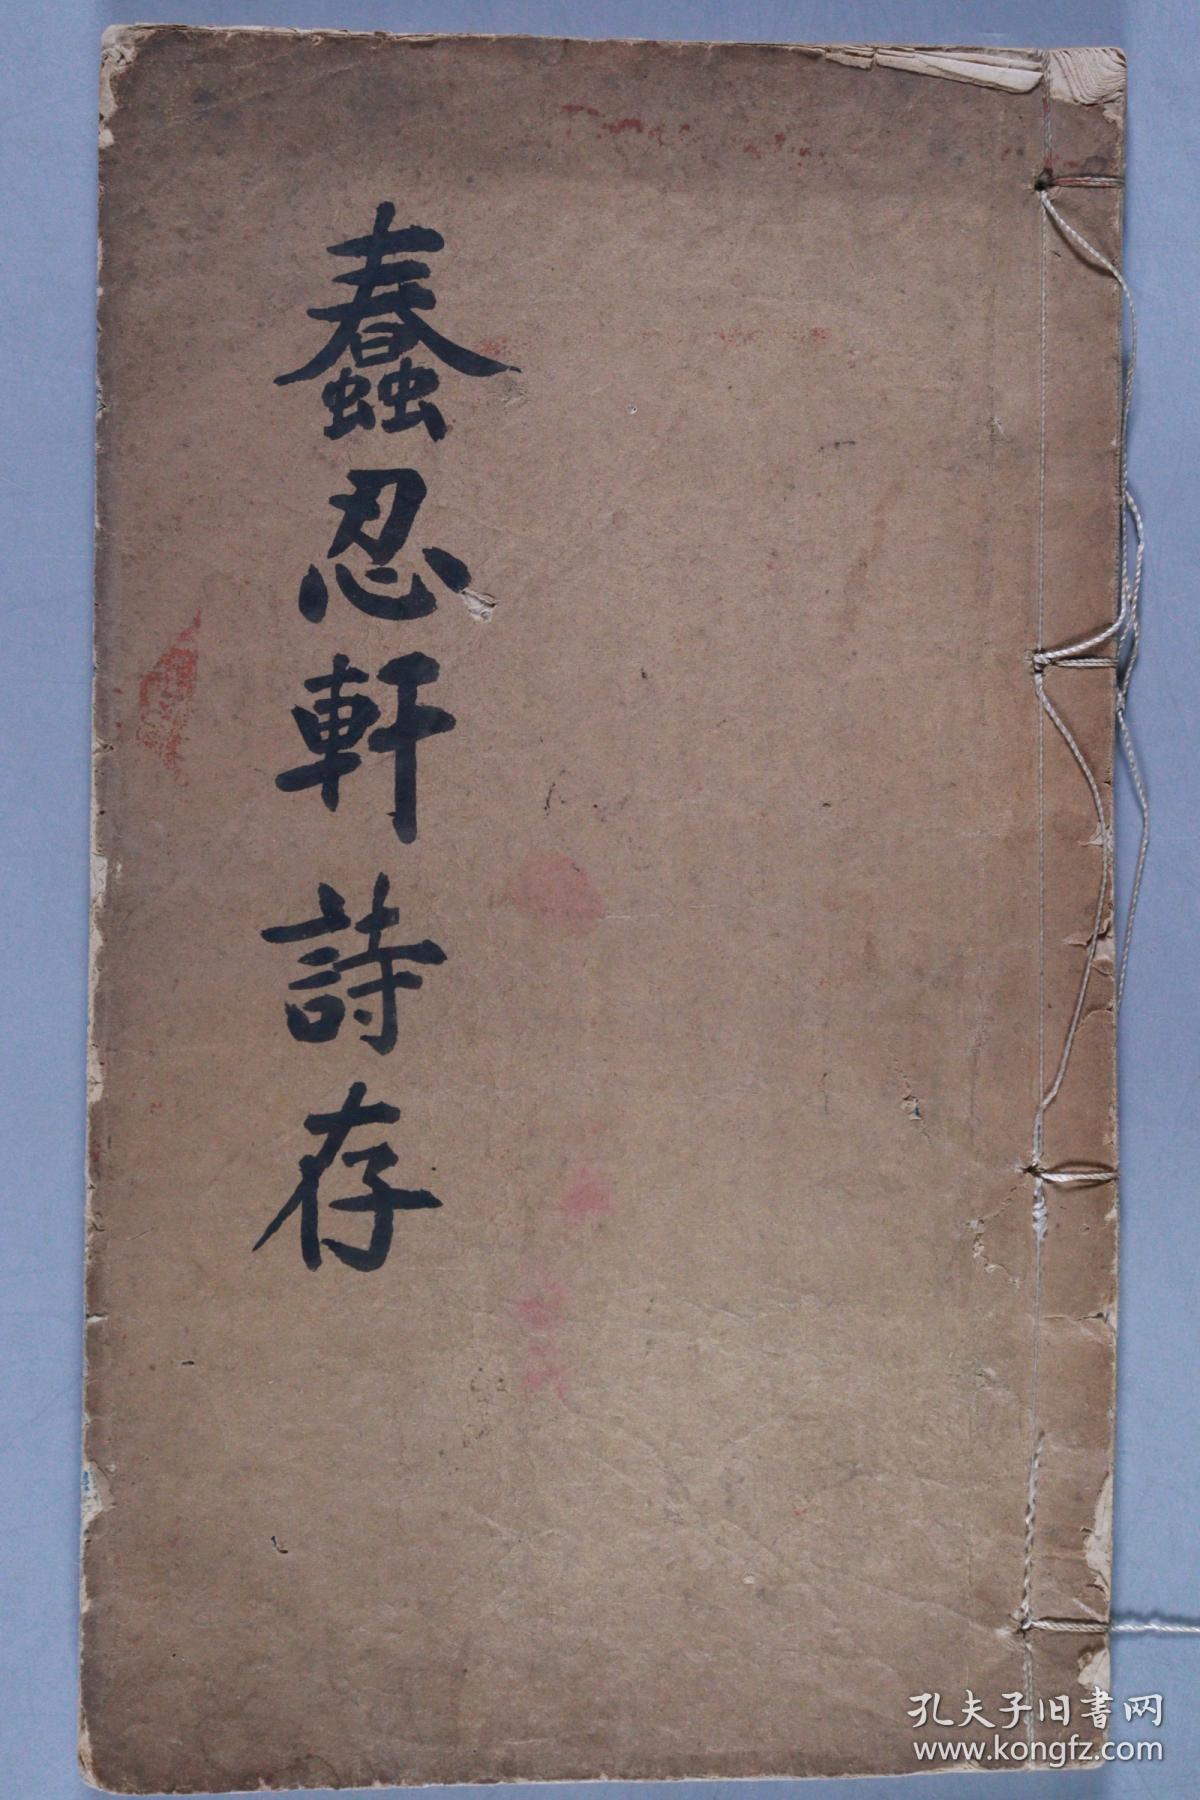 蠢忍軒詩存
孔夫子旧书网
www.kongfz.com